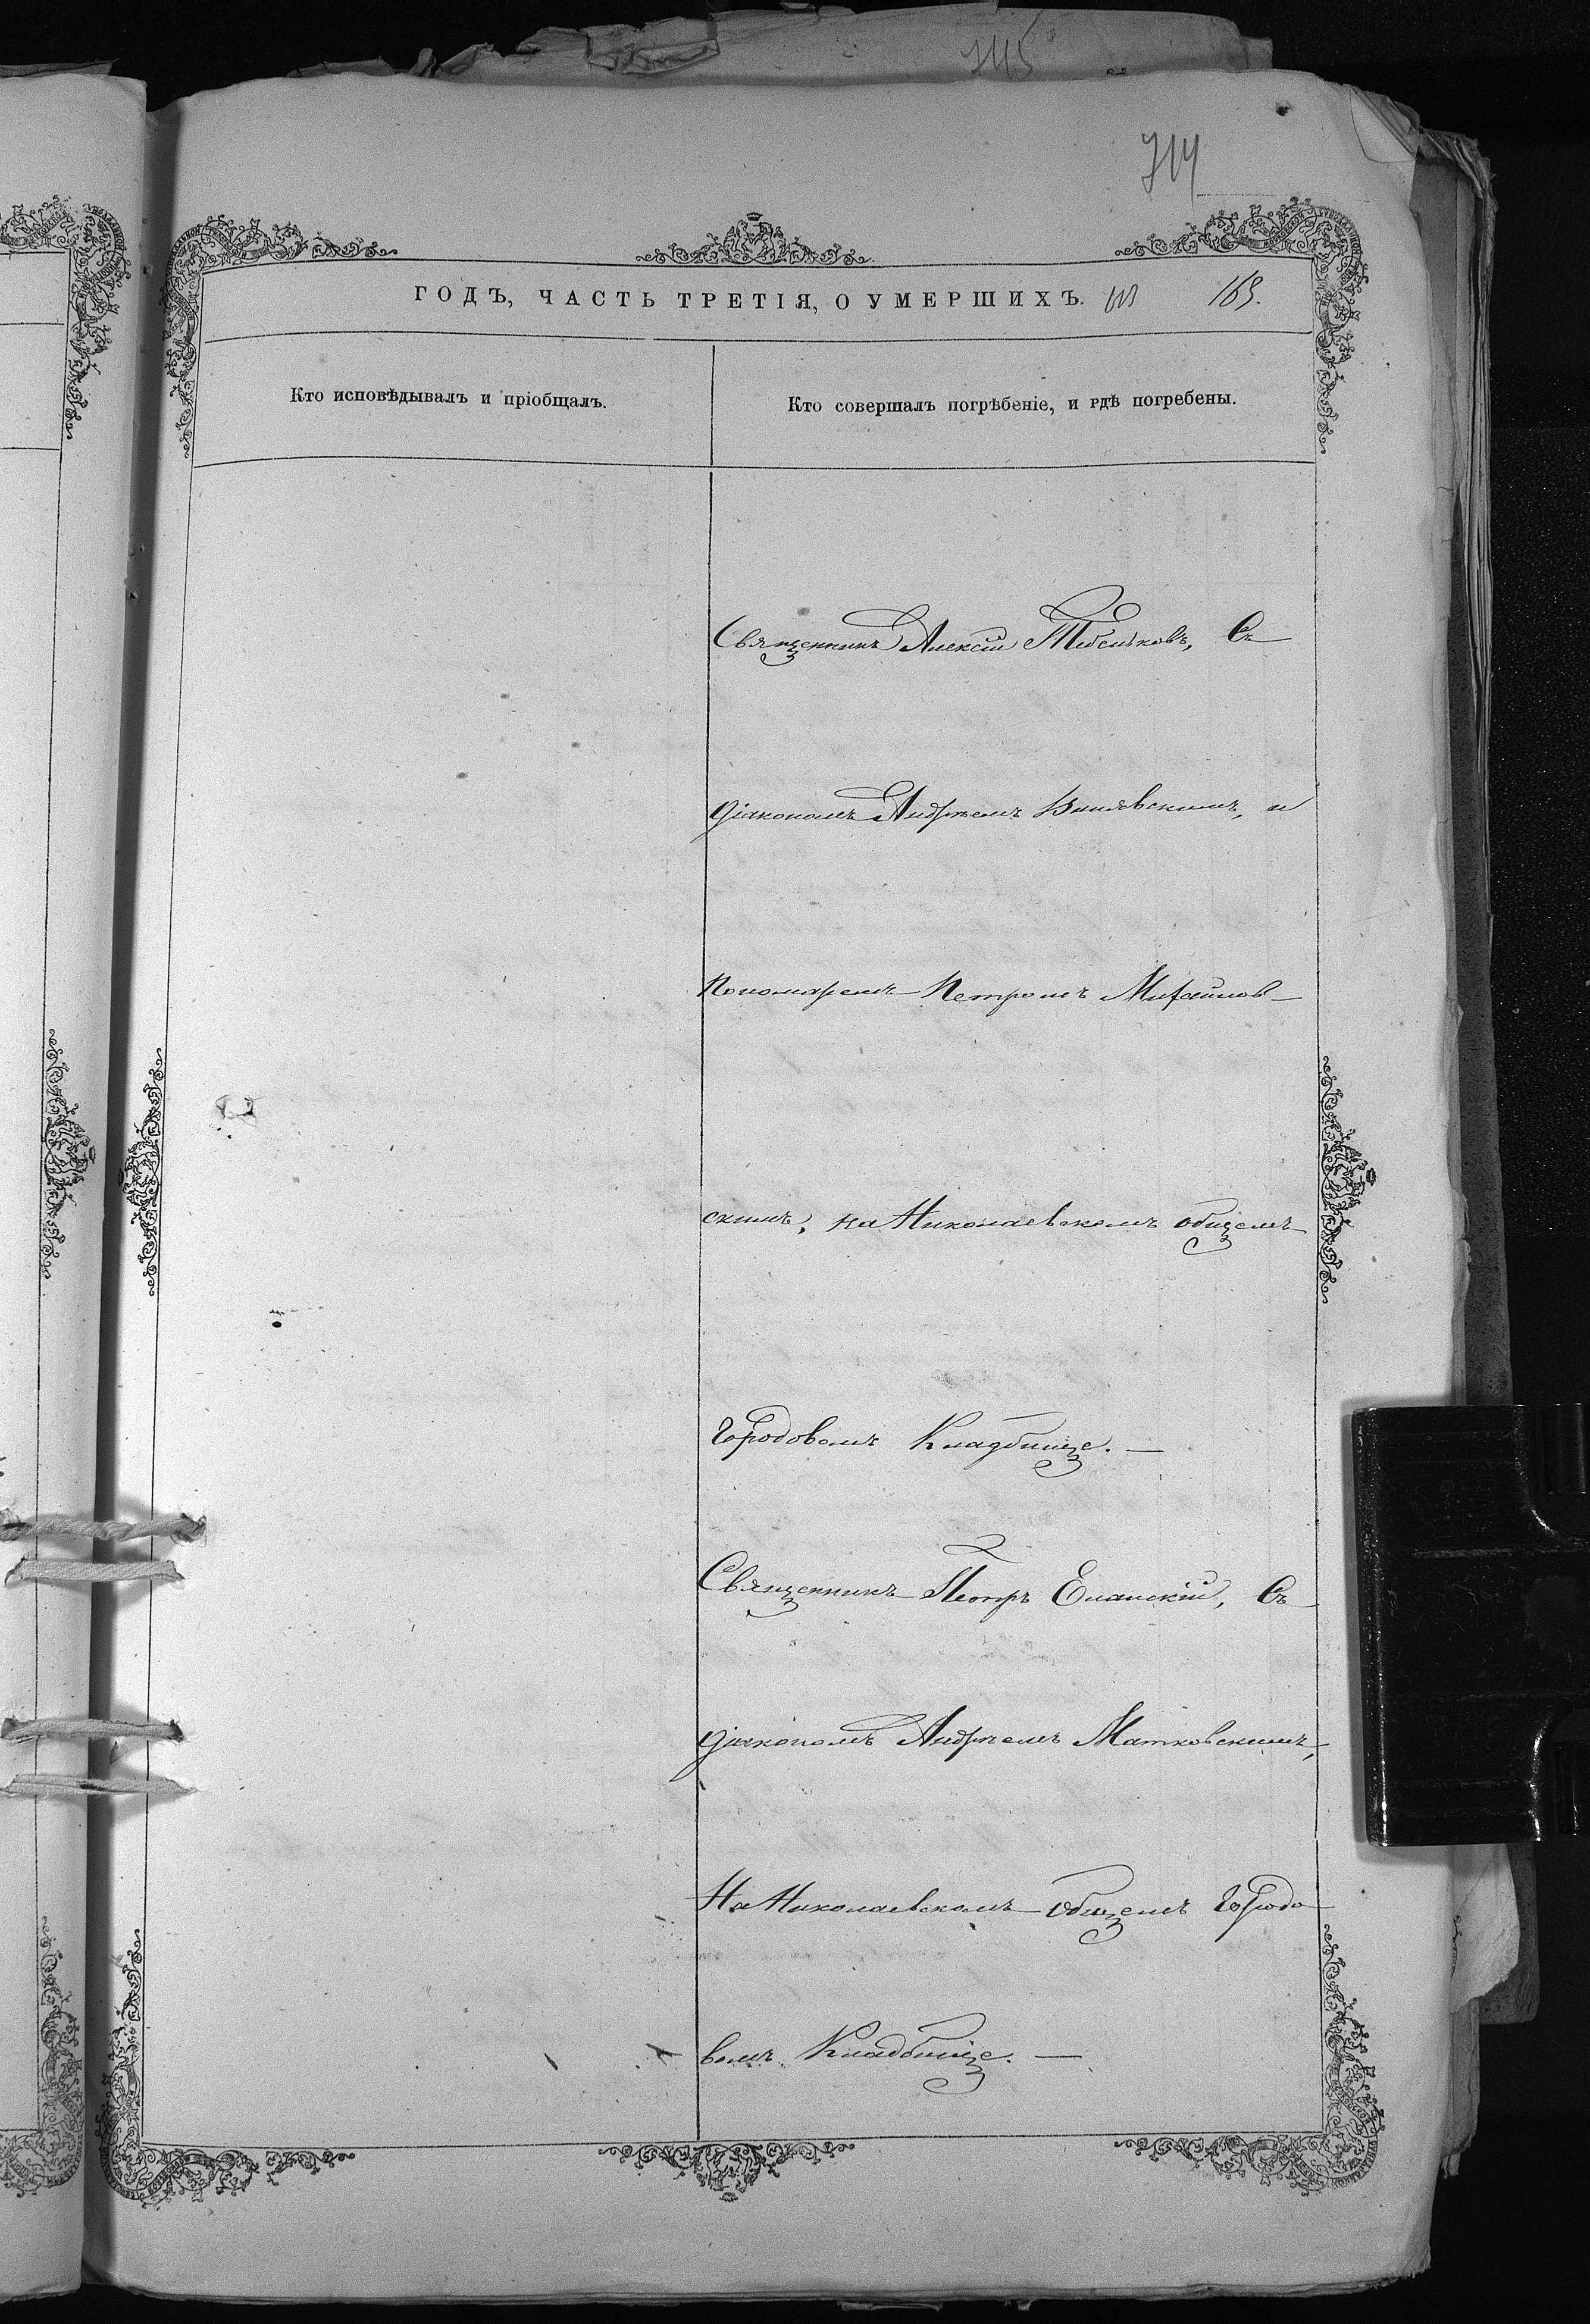 715
714
ГОДЪ, ЧАСТЬ ТРЕТІЯ, О УМЕРШИХЪ. 163.
Кто исповѣдывалъ и пріобщалъ.
Кто совершалъ погрѣбеніе, и гдѣ погребены.
Священникъ Алексій Тебеньковъ, съ
діакономъ Андреемъ и
пономаремъ Петромъ Михайлов-
скимъ, на Николаевскомъ общемъ
городовомъ Кладбище. —
Священникъ Петръ Еланскій, съ
діакономъ Андреемъ Матковскимъ,
На Николаевскомъ общемъ городо
вомъ Кладбище. —